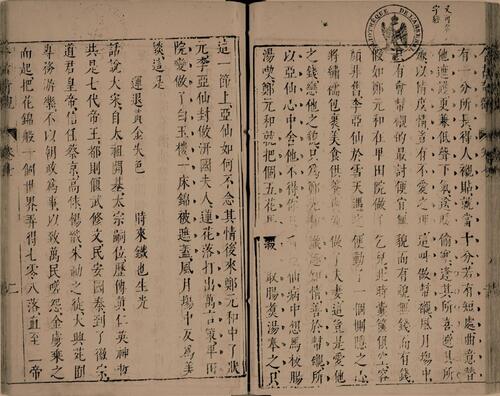 有一分所長得人襯貼就當十分若有短處曲意替
他遮護更兼低聲下氣送暖偷寒逢其所喜避其所
諱以情度情豈有不愛之理這叫做幫襯風月場中
只有會幫襯的最討便宜無貌而有貌無錢而有錢
假如鄭元和在卑田院做了乞兒此時囊篋俱空容
顏非舊李亞仙於雪天遇之便動了一個惻隱之心
將繡襦包裹美食供養與他做了夫妻這豈是愛他
之錢戀他之貌只為鄭元和識趣知情善於幫襯所
以亞仙心中捨他不得你只看亞仙病中想馬板腸
湯喫鄭元和就把個五花馬殺了取腸煑湯奉之只
這一節上亞仙如何不念其情後來鄭元和中了狀
元李亞仙封做汧國夫人蓮花落打出萬言策卑田
院變做了白玉樓一床錦被遮蓋風月場中反為美
談這是
運退黃金失色 時來鐵也生光
話說大宋自太祖開基太宗嗣位歷傳真仁英神哲
共是七代帝王都則偃武修文民安國泰到了徽宗
道君皇帝信任蔡京高俅楊戩朱勔之徒大興苑囿
專務游樂不以朝政為事以致萬民嗟怨金虜乘之
而起把花錦般一個世界弄得七零八落直至二帝